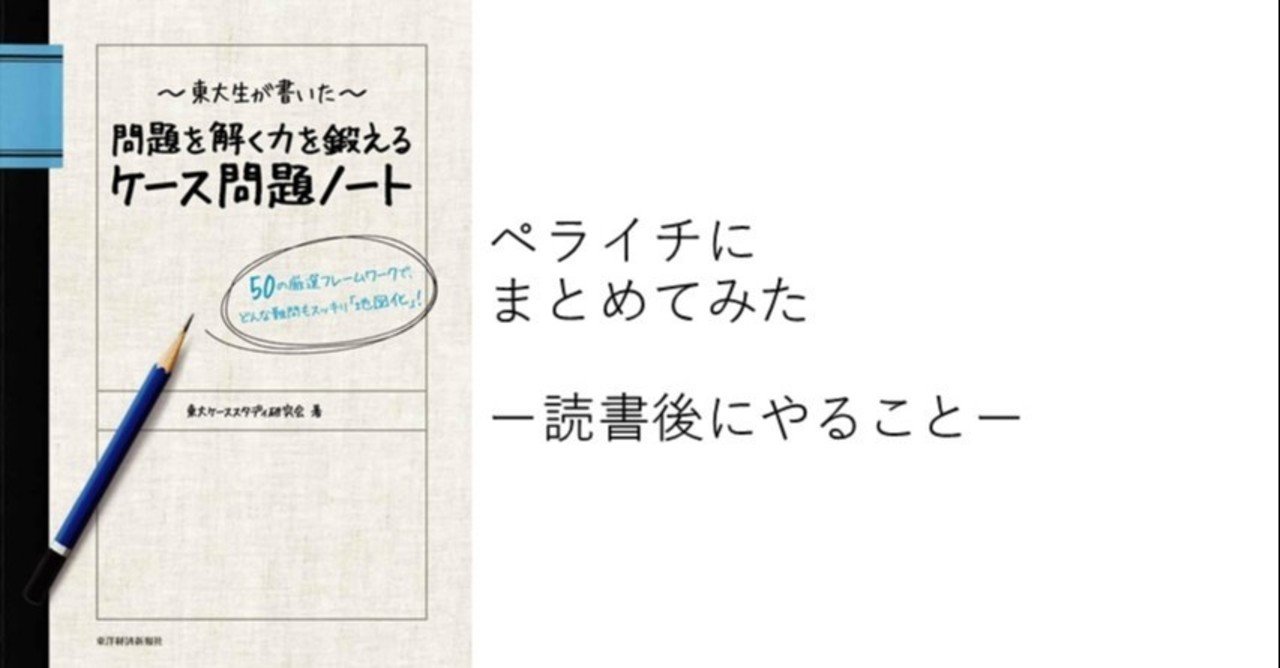 ～東大生が書いた～
問題を解く力を鍛える
ケース問題ノート
50の厳選フレームワークで、
どんな難問もスッキリ「地図化」!
東大ケーススタディ研究会 著
東洋経済新報社
ペライチに
まとめてみた
ー読書後にやることー